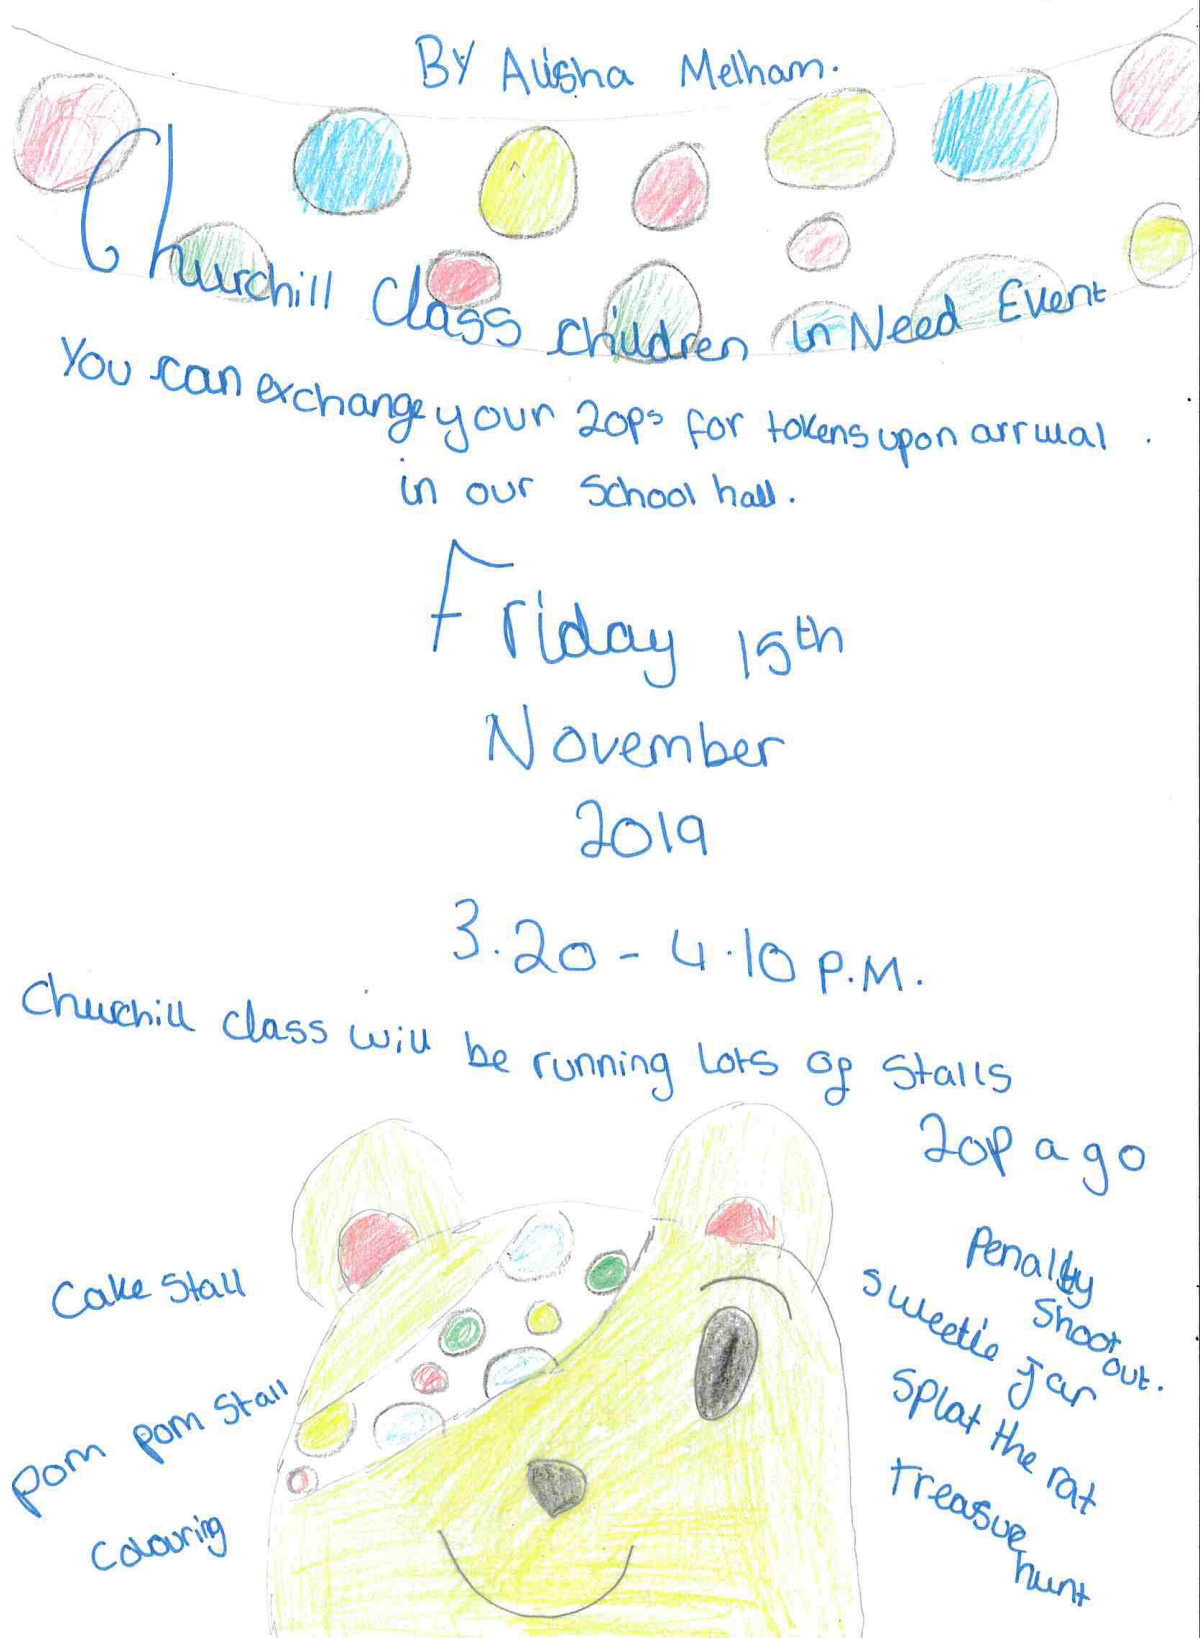 By Alisha Melham.
Churchill Class Children in Need Event
You can exchange your 20ps for tokens upon arrival.
in our School hall.
Friday 15th
November
2019
3.20 - 4.10 P.M.
Churchill class will be running lots of stalls
20p a go
Cake Stall
pom pom Stall
Colouring
Penalty
Shoot
out.
Sweetie Jar
Splat the rat
Treasue
hunt